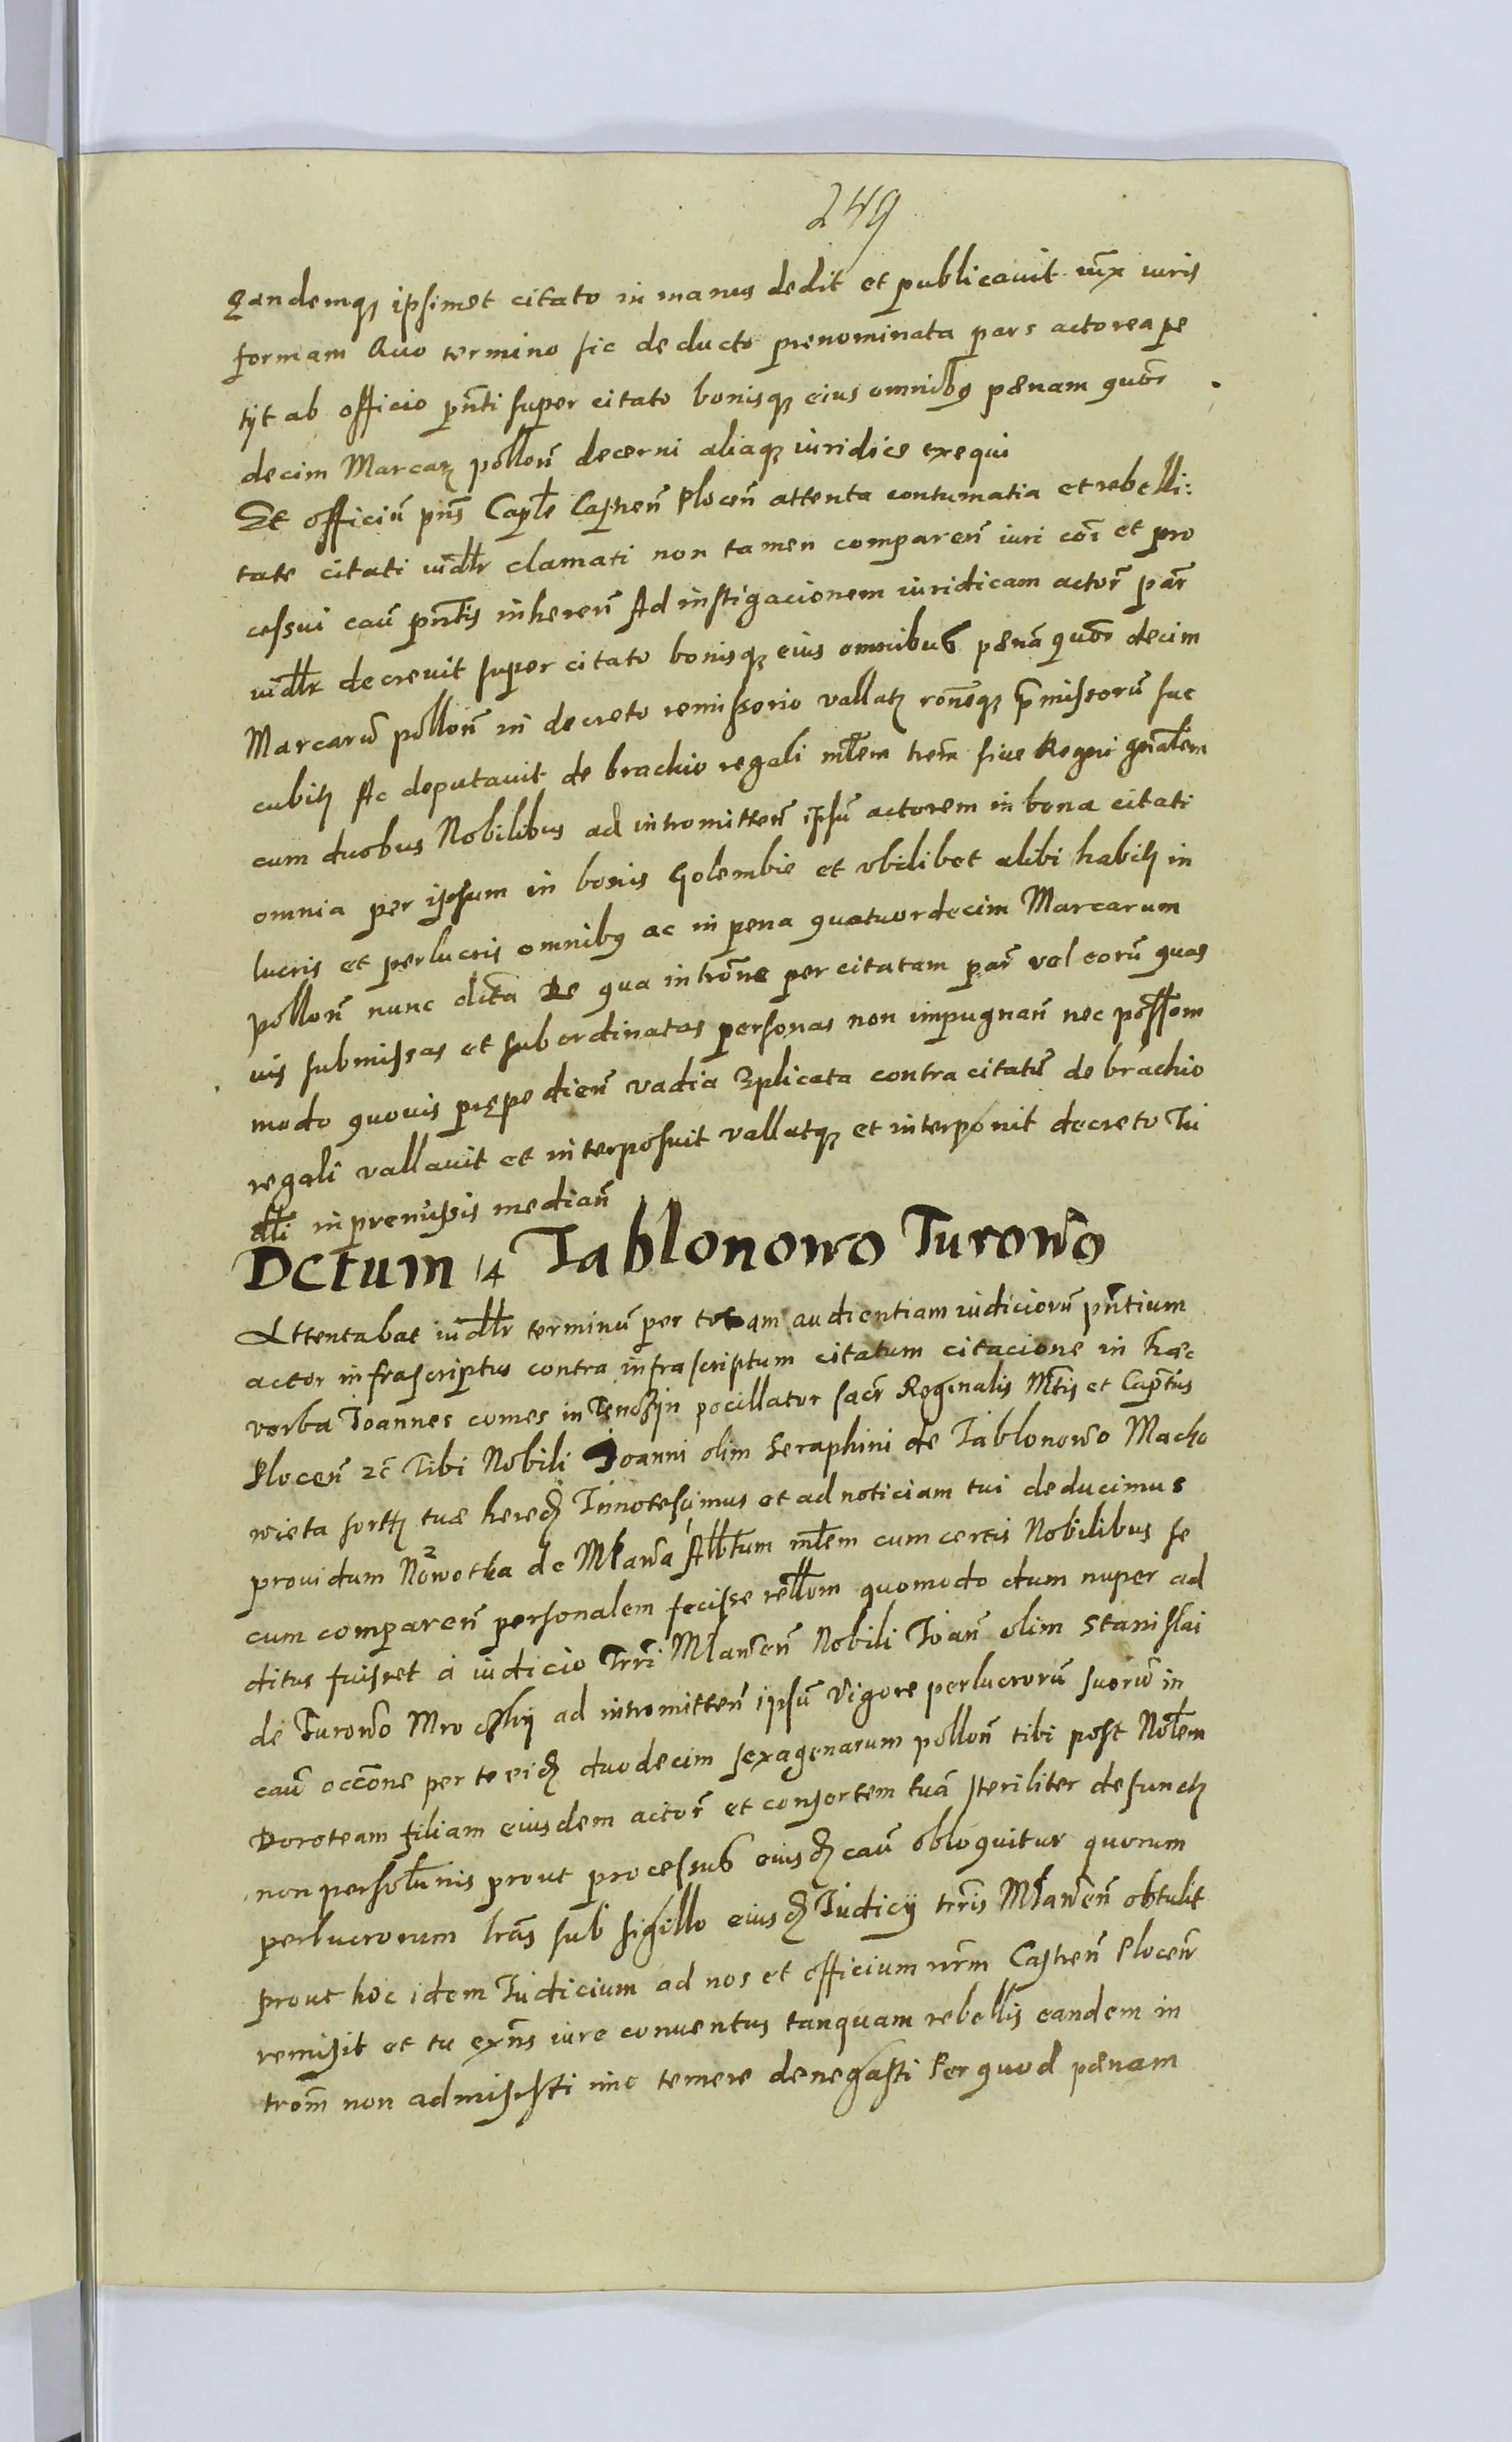 249
eandemq3 ipsimet citato in manus dedit et publicavit iux̃ iuris
formam Quo termino sic deducto prenominata pars actorea pe
tijt ab officio pñti super citato bonisq3 eius omnibꝰ pænam quor̃
decim Marcaꝝ pollon̄ decerni aliaq3 iuridice exequi
Et officiũ pñs Caplẽ Castren̄ Plocen̄ attenta contumatia et rebelli:
tate citati iudlr̃ clamati non tamen comparen̄ iuri cõi et pro
cessui caũ pñtis inheren̄ Ad instigacionem iuridicam actor̃ par̃
iudlr̃ decrevit super citato bonisq3 eius omnibus pænã quor̃ decim
Marcarũ pollon̄ in decreto remissorio vallatꝫ rõneq3 p̃missorũ suc
cubitꝫ Ac deputavit de brachio regali mlẽm trẽm sive Regni gñalẽm
cum duobus Nobilibus ad intromitten̄ ipsũ actorem in bona citati
omnia per ipsum in bonis Golembie et vbilibet alibi habitꝫ in
lucris et perlucris omnibꝰ ac in pena quatuordecim Marcarum
pollon̄ nunc dicta De qua intrõne per citatam par̃ vel eorũ quas
vis submissas et subordinatas personas non impugnan̄ nec possem
modo quovis prępedien̄ vadia 3plicata contra citatũ de brachio
regali vallavit et interposuit vallatq3 et interponit decreto Iu
dlĩ in premissis median̄
Dctum 14 Iablonowo Turowo
Attentabat iudlr̃ terminũ per totam audientiam iudiciorũ pñtium
actor infrascriptus contra infrascriptum citatum citacione in hæc
verba Ioannes comes in Tenczyn pocillator sacr̃ Reginalis Mtĩs et Captũs
Plocen̄ zc̃ Tibi Nobili Joanni olim Seraphini de Iablonowo Macho
wieta sortꝫ tuæ hered Innotescimus et ad noticiam tui deducimus
providum Nowotka de Mlawa Albtũm mlẽm cum certis Nobilibus se
cum comparen̄ personalem fecisse rellõm quomodo dum nuper ad
ditus fuisset a iudicio Trrĩ Mlawen̄ Nobili Ioan̄ olim Stanislai
de Turowo Mroczky ad intromitten̄ ipsũ Vigore perlucrorũ suorũ in
caũ occõne per te eid duodecim sexagenarum pollon̄ tibi post Noblẽm
Doroteam filiam eiusdem actor̃ et consortem tuã steriliter defunctꝫ
non persolũnis prout processus eiusd caũ obloquitur quorum
perlucrorum lrãs sub sigillo eiusd Iudicij trrĩs Mlawen̄ obtulit
prout hoc idem Iudicium ad nos et officium nr̃m Castren̄ Plocen̄
remisit et tu exñs iure conventus tanquam rebellis eandem in
trom̃ non admisisti imo temere denegasti Per quod pænam